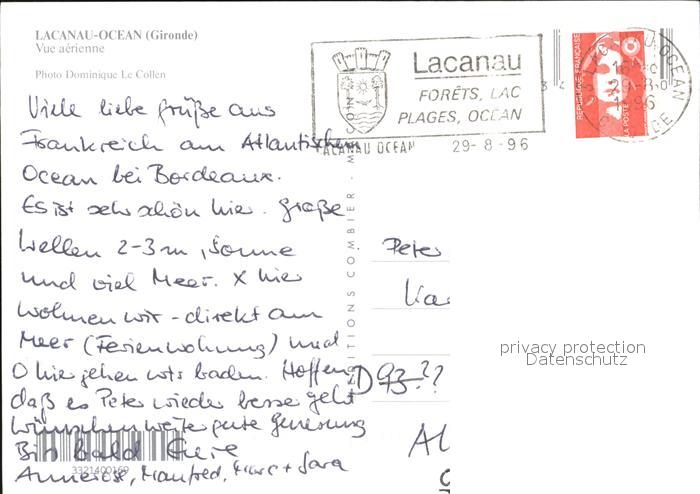 LACANAU-OCEAN (Gironde)
Vue aérienne
Photo Dominique Le Collen
Lacanau
FORÊTS, LAC
PLAGES, OCÉAN
LACANAU OCEAN 29-8-96
REPUBLIQUE FRANÇAISE
LA POSTE
LACANAU OCEAN
29-8
96
GIRONDE
Viele liebe Grüße aus
Frankreich am Atlantischen
Ocean bei Bordeaux.
Es ist sehr schön hier. Große
Wellen 2-3 m, Sonne
und viel Meer. X hier
wohnen wir - direkt am
Meer (Ferienwohnung) und
O hier gehen wir baden. Hoffen
daß es Peter wieder besser geht
wünschen weiter gute Genesung
Bis bald Eure
Annerose, Manfred, Marc + Sara
EDITIONS COMBIER - M
Peter
D 93??
Al
privacy protection
Datenschutz
3321400169